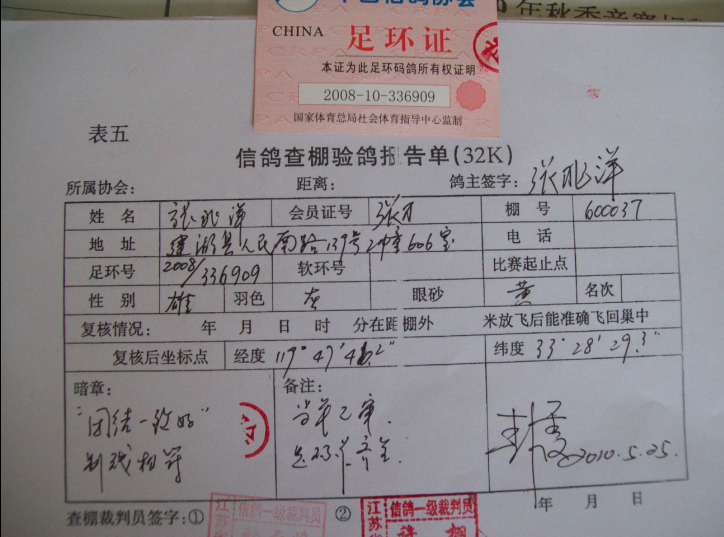 中国信鸽协会
年秋季
CHINA 足环证
本证为此足环码鸽所有权证明
2008-10-336909
国家体育总局社会体育指导中心监制
表五
信鸽查棚验鸽报告单(32K)
所属协会: 距离: 鸽主签字: 张兆洋
姓名 张兆洋 会员证号 棚号 600037
地址 建湖县人民南路139号2幢606室 电话
足环号 2008/336909 软环号 比赛起止点
性别 雄 羽色 灰 眼砂 黄 名次
复核情况: 年 月 日 时 分在距棚外 米放飞后能准确飞回巢中
复核后坐标点 经度 117°47'42" 纬度 33°28'29.3"
暗章: 备注:
"团结一致好"
相符
2010.5.25.
年 月 日
查棚裁判员签字:① ②
江苏省 信鸽一级裁判员
江苏省 信鸽一级裁判员